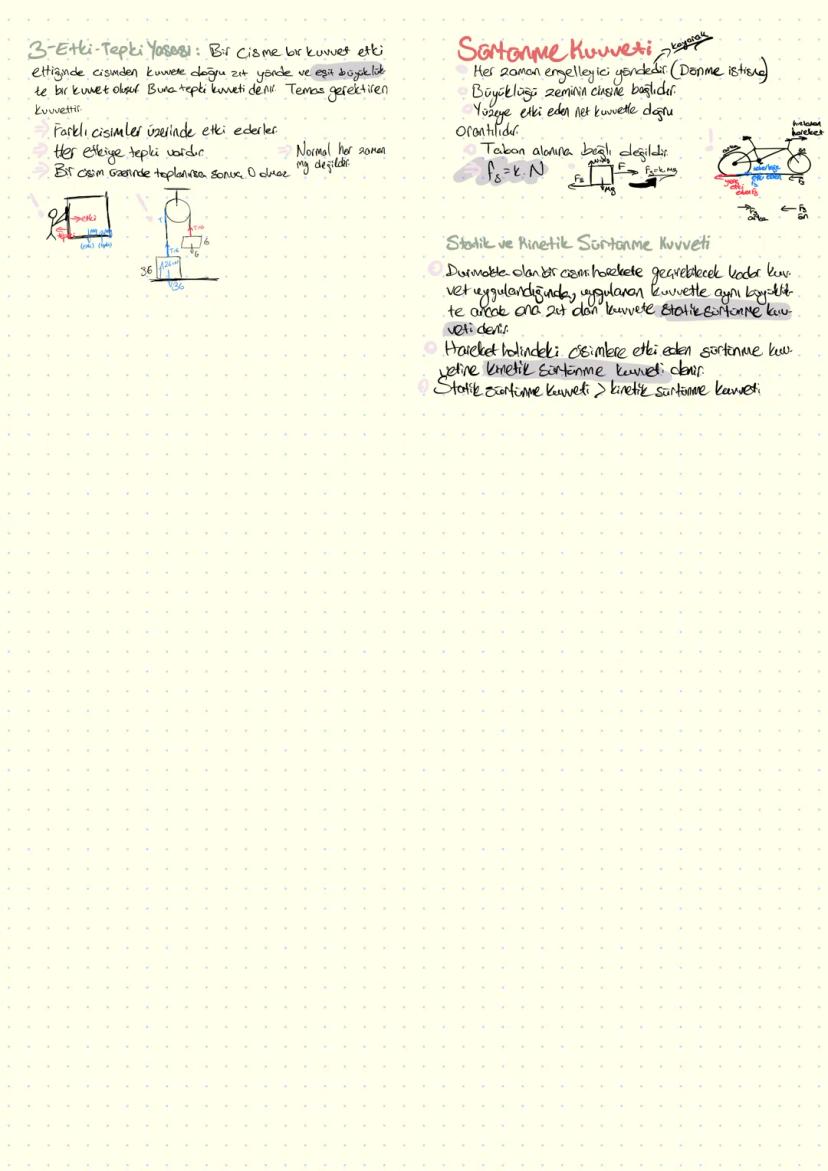 3-Etki-Tepki Yasası: Bir cisme bir kuvvet etki
ettiğinde cisimden kuvvete doğru zıt yönde ve eşit büyüklük-
te bir kuvvet oluşur. Buna tepki kuvveti denir. Temas gerektiren
kuvvettir.
Farklı cisimler üzerinde etki ederler.
Her etkiye tepki vardır.
Bir cisim üzerinde toplanırsa sonuç 0 olmaz
Normal her zaman
mg değildir.
etki
tepki
3G
G
G
3G
Sürtünme Kuvveti
kayarak
Her zaman engelleyici yöndedir (Dönme istisna)
Büyüklüğü zeminin cinsine bağlıdır.
Yüzeye etki eden net kuvvetle doğru
orantılıdır.
Taban alanına bağlı değildir.
fs=k.N
Fs
F
Mg
Fs=k.mg
hızlanan
hareket
arka
ön
yere
etki
eden Fs
tekerleğe
etki eden
Fs
Fs
Fs
arka
Fs
ön
Statik ve Kinetik Sürtünme Kuvveti
Durmakta olan bir cismi harekete geçirebilecek kadar kuv-
vet uygulandığında, uygulanan kuvvetle aynı büyüklük-
te ancak ona zıt olan kuvvete statik sürtünme kuv-
veti denir.
Hareket halindeki cisimlere etki eden sürtünme kuv-
vetine kinetik sürtünme kuvveti denir.
Statik sürtünme kuvveti > kinetik sürtünme kuvveti